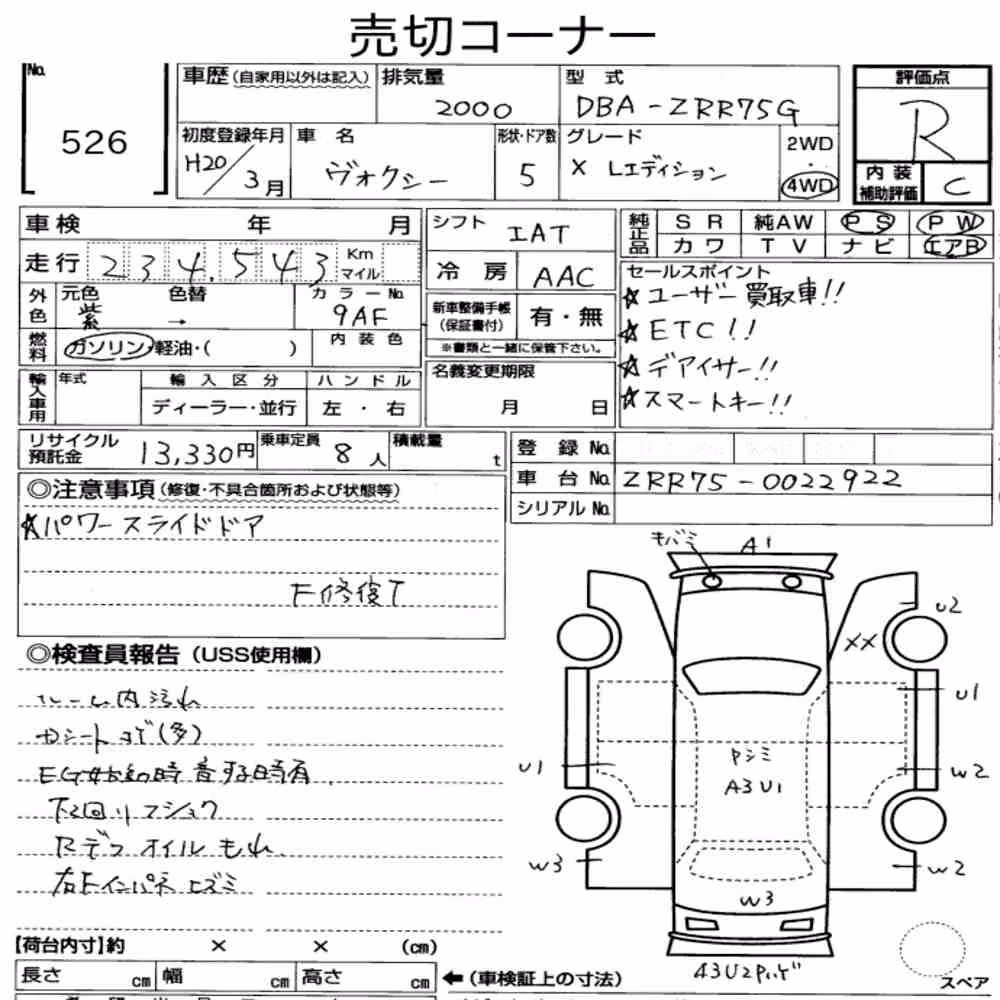 売切コーナー
No. 526
車歴(自家用以外は記入) 排気量 2000 型式 DBA-ZRR75G
評価点 R
初度登録年月 H20/3月 車名 ヴォクシー 形状・ドア数 5 グレード X Lエディション 2WD・4WD
内装補助評価 C
車検 年 月
シフト IAT
純正品 SR 純AW PS PW
カワ TV ナビ エアB
走行 234,543 Km マイル
冷房 AAC
外色 元色 紫 色替 → カラーNo. 9AF
新車整備手帳(保証書付) 有・無
※書類と一緒に保管下さい。
燃料 ガソリン・軽油・( ) 内装色
セールスポイント
☆ユーザー買取車!!
☆ETC!!
☆デアイサー!!
☆スマートキー!!
名義変更期限 月 日
輸入車用 年式 輸入区分 ディーラー・並行 ハンドル 左・右
リサイクル預託金 13,330円 乗車定員 8人 積載量 t
登録No.
車台No. ZRR75-0022922
シリアルNo.
◎注意事項(修復・不具合箇所および状態等)
☆パワースライドドア
F修復T
◎検査員報告(USS使用欄)
ルーム内汚れ
内シートコゲ(多)
EG始動時音する時有
下回りマショウ
Rデフオイルもれ
右Fインパネヒズミ
キバミ A1
U2
XX
U1
U1
W2
Pシミ
A3U1
W3
W2
W3
A3U2Pハゲ
スペア
【荷台内寸】約 × × (cm)
長さ cm 幅 cm 高さ cm ←(車検証上の寸法)